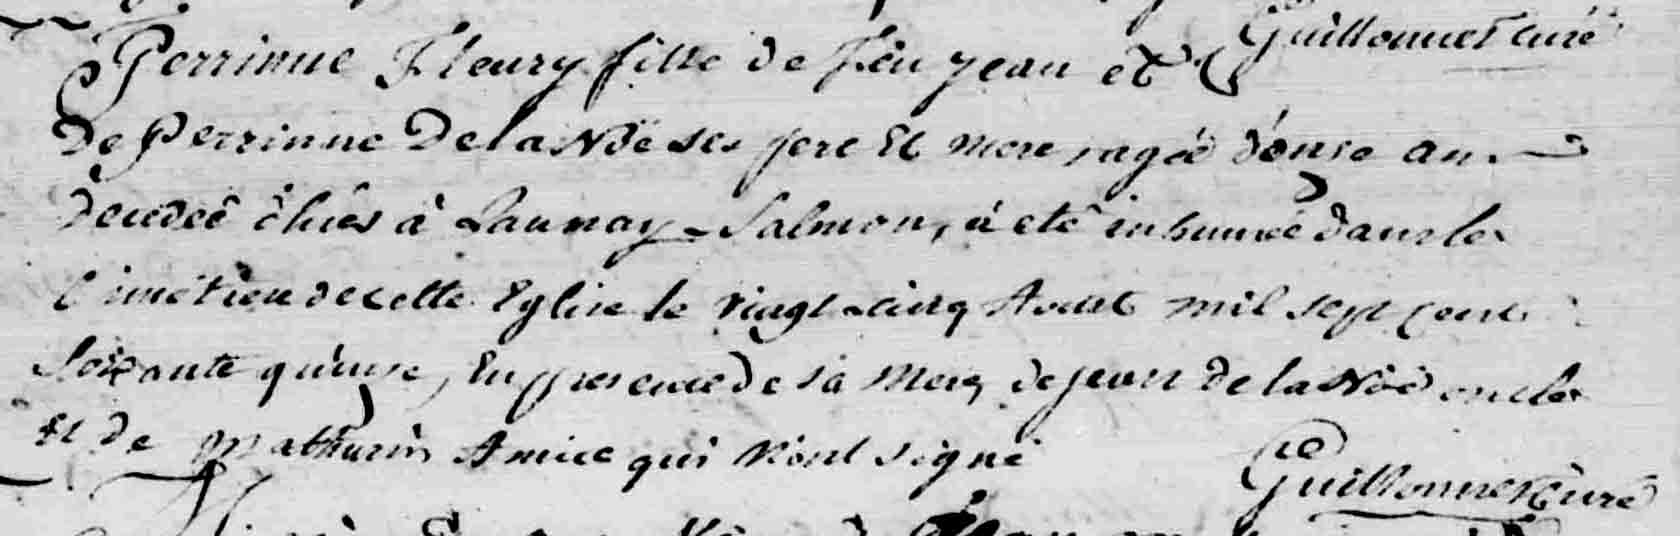 Guillonnet curé
Perrinne Fleury fille de feu jean et
De Perrinne De la Noë ses pere Et mere, agée d'onze an
décedée hier à Launay-Salmon, à eté inhumée dans le
Cimetiere de cette Eglise le vingt-cinq Aoust mil sept cent
soixante quinze, En presence de sa Mere, de jean De la Noë oncle
Et de Mathurin Amice qui n'ont signé
Guillonnet Curé